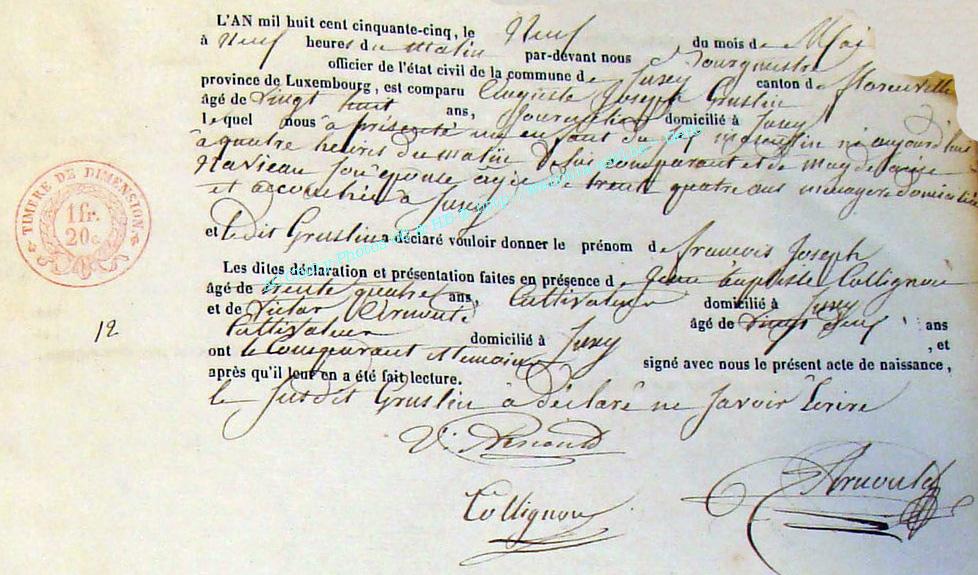 L'AN mil huit cent cinquante-cinq, le Neuf du mois de Mai
à Neuf heures du matin par-devant nous Bourgmestre
officier de l'état civil de la commune de Jusey canton de Florenville
province de Luxembourg, est comparu Auguste Joseph Gruslin
âgé de vingt huit ans, Journalier domicilié à Jusey
lequel nous à présenté un enfant du sexe masculin né aujourd'hui
à quatre heures du matin de lui comparant et de
Navieau son épouse agée de trente quatre ans menagere domiciliée
et accouchée à Jusey
et le dit Gruslin a déclaré vouloir donner le prénom de francois Joseph
Les dites déclaration et présentation faites en présence d Jean baptiste Collignon
âgé de trente quatre ans, Cultivateur domicilié à Jusey
et de Victor âgé de vingt neuf ans
Cultivateur domicilié à Jusey , et
ont le Comparant et temoins signé avec nous le présent acte de naissance,
après qu'il leur en a été fait lecture.
le Susdit Gruslin à déclaré ne savoir Ecrire
V.
Collignon
TIMBRE DE DIMENSION
1 fr.
20 c.
12